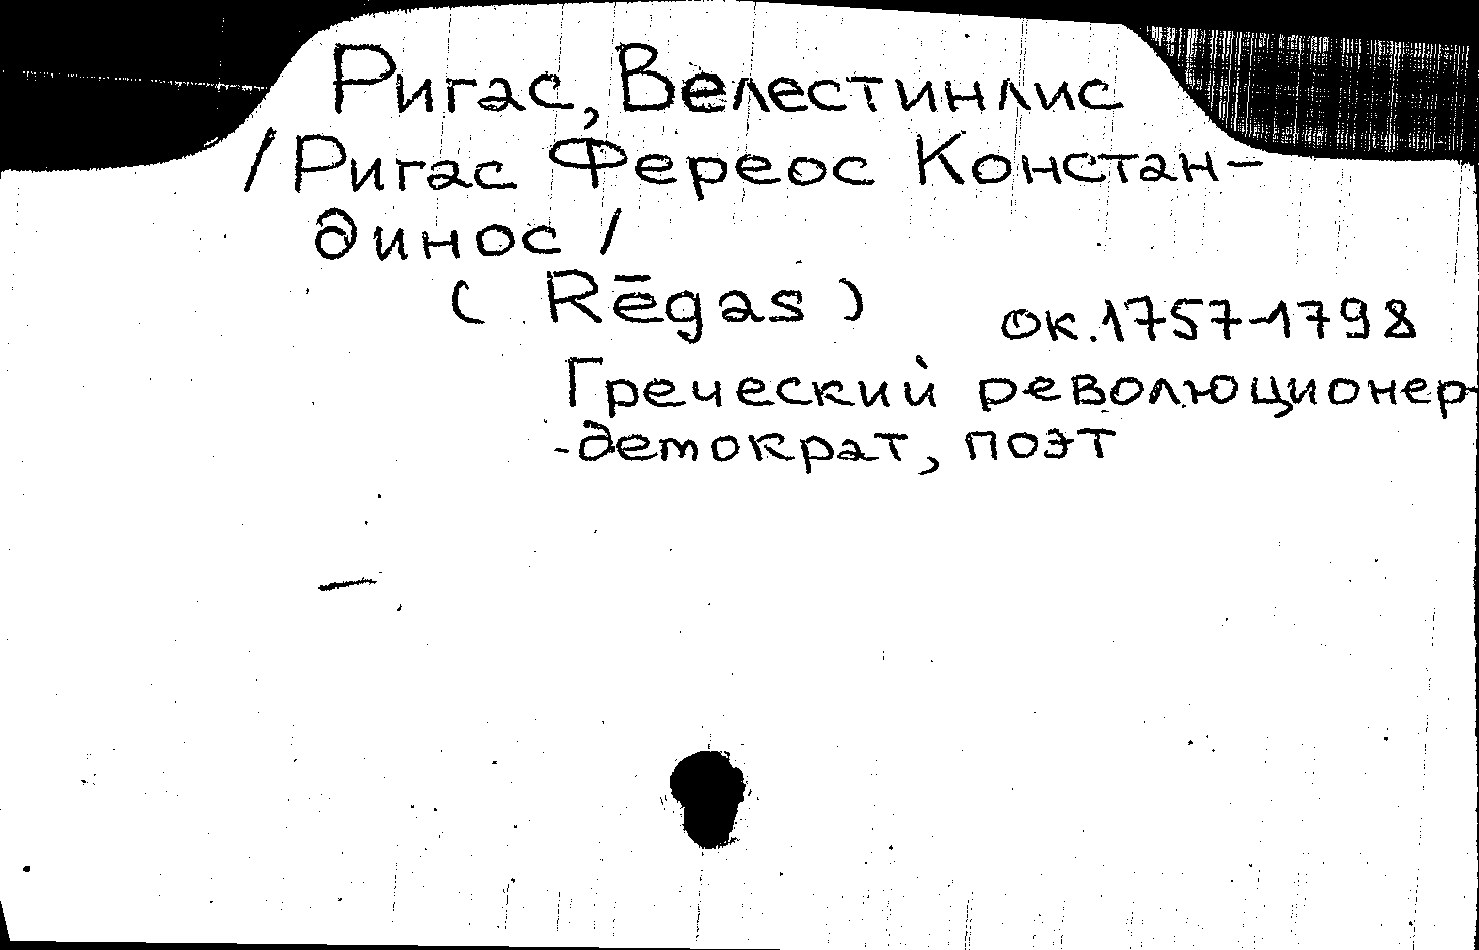 Ригас, Велестинлис
/Ригас Фереос Констан-
динос/
(Rēgas)
ок. 1757-1798
Греческий революционер-
-демократ, поэт